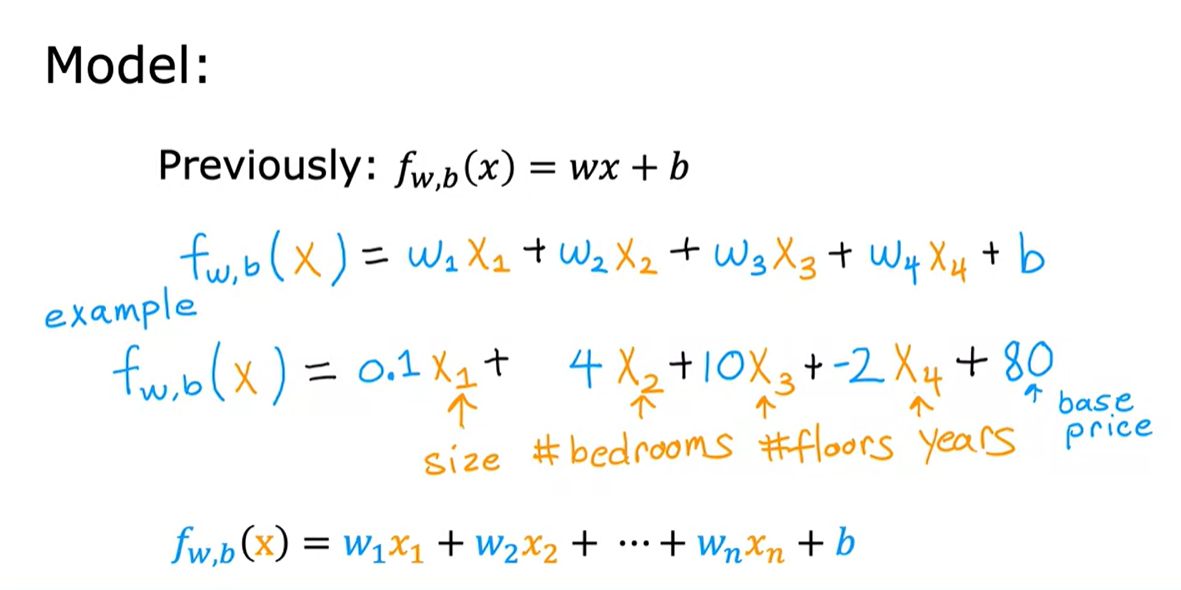 Model:
Previously: f_{w,b}(x) = wx + b
f_{w,b}(x) = w₁x₁ + w₂x₂ + w₃x₃ + w₄x₄ + b
example
f_{w,b}(x) = 0.1 x₁ + 4 x₂ + 10x₃ + -2 x₄ + 80
↑ ↑ ↑ ↑ ↑ base price
size #bedrooms #floors years
f_{w,b}(x) = w₁x₁ + w₂x₂ + ⋯ + wₙxₙ + b